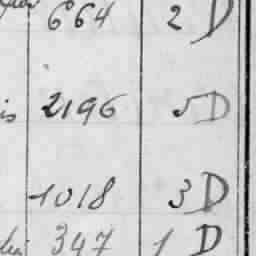 664 2 D
is 2196 5 D
1018 3 D
347 1 D